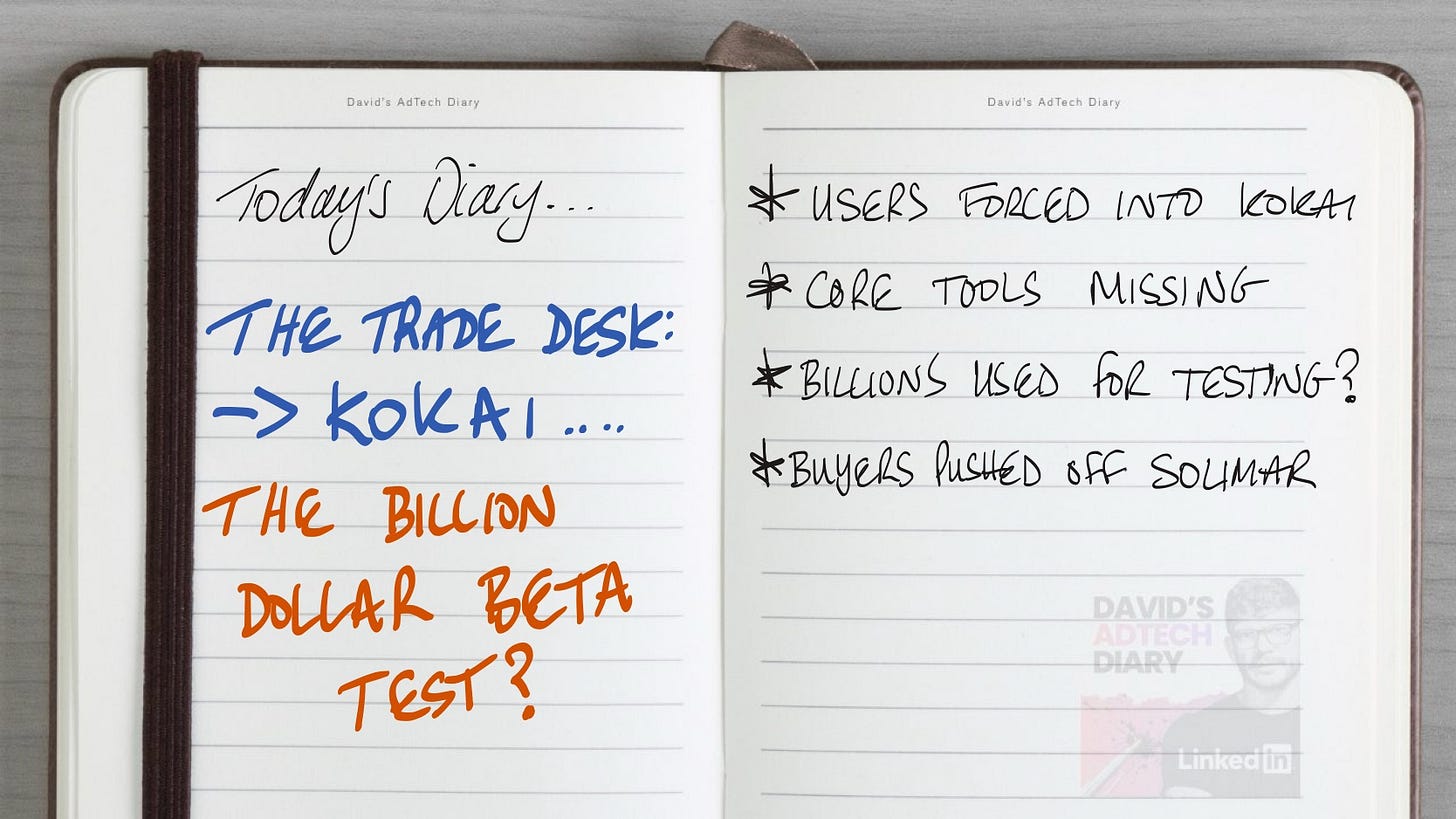 David's AdTech Diary
Today's Diary...
THE TRADE DESK:
-> KOKAI ....
THE BILLION
DOLLAR BETA
TEST?
David's AdTech Diary
* USERS FORCED INTO KOKAI
* CORE TOOLS MISSING
* BILLIONS USED FOR TESTING?
* BUYERS PUSHED OFF SOLIMAR
DAVID'S
ADTECH
DIARY
Linked in